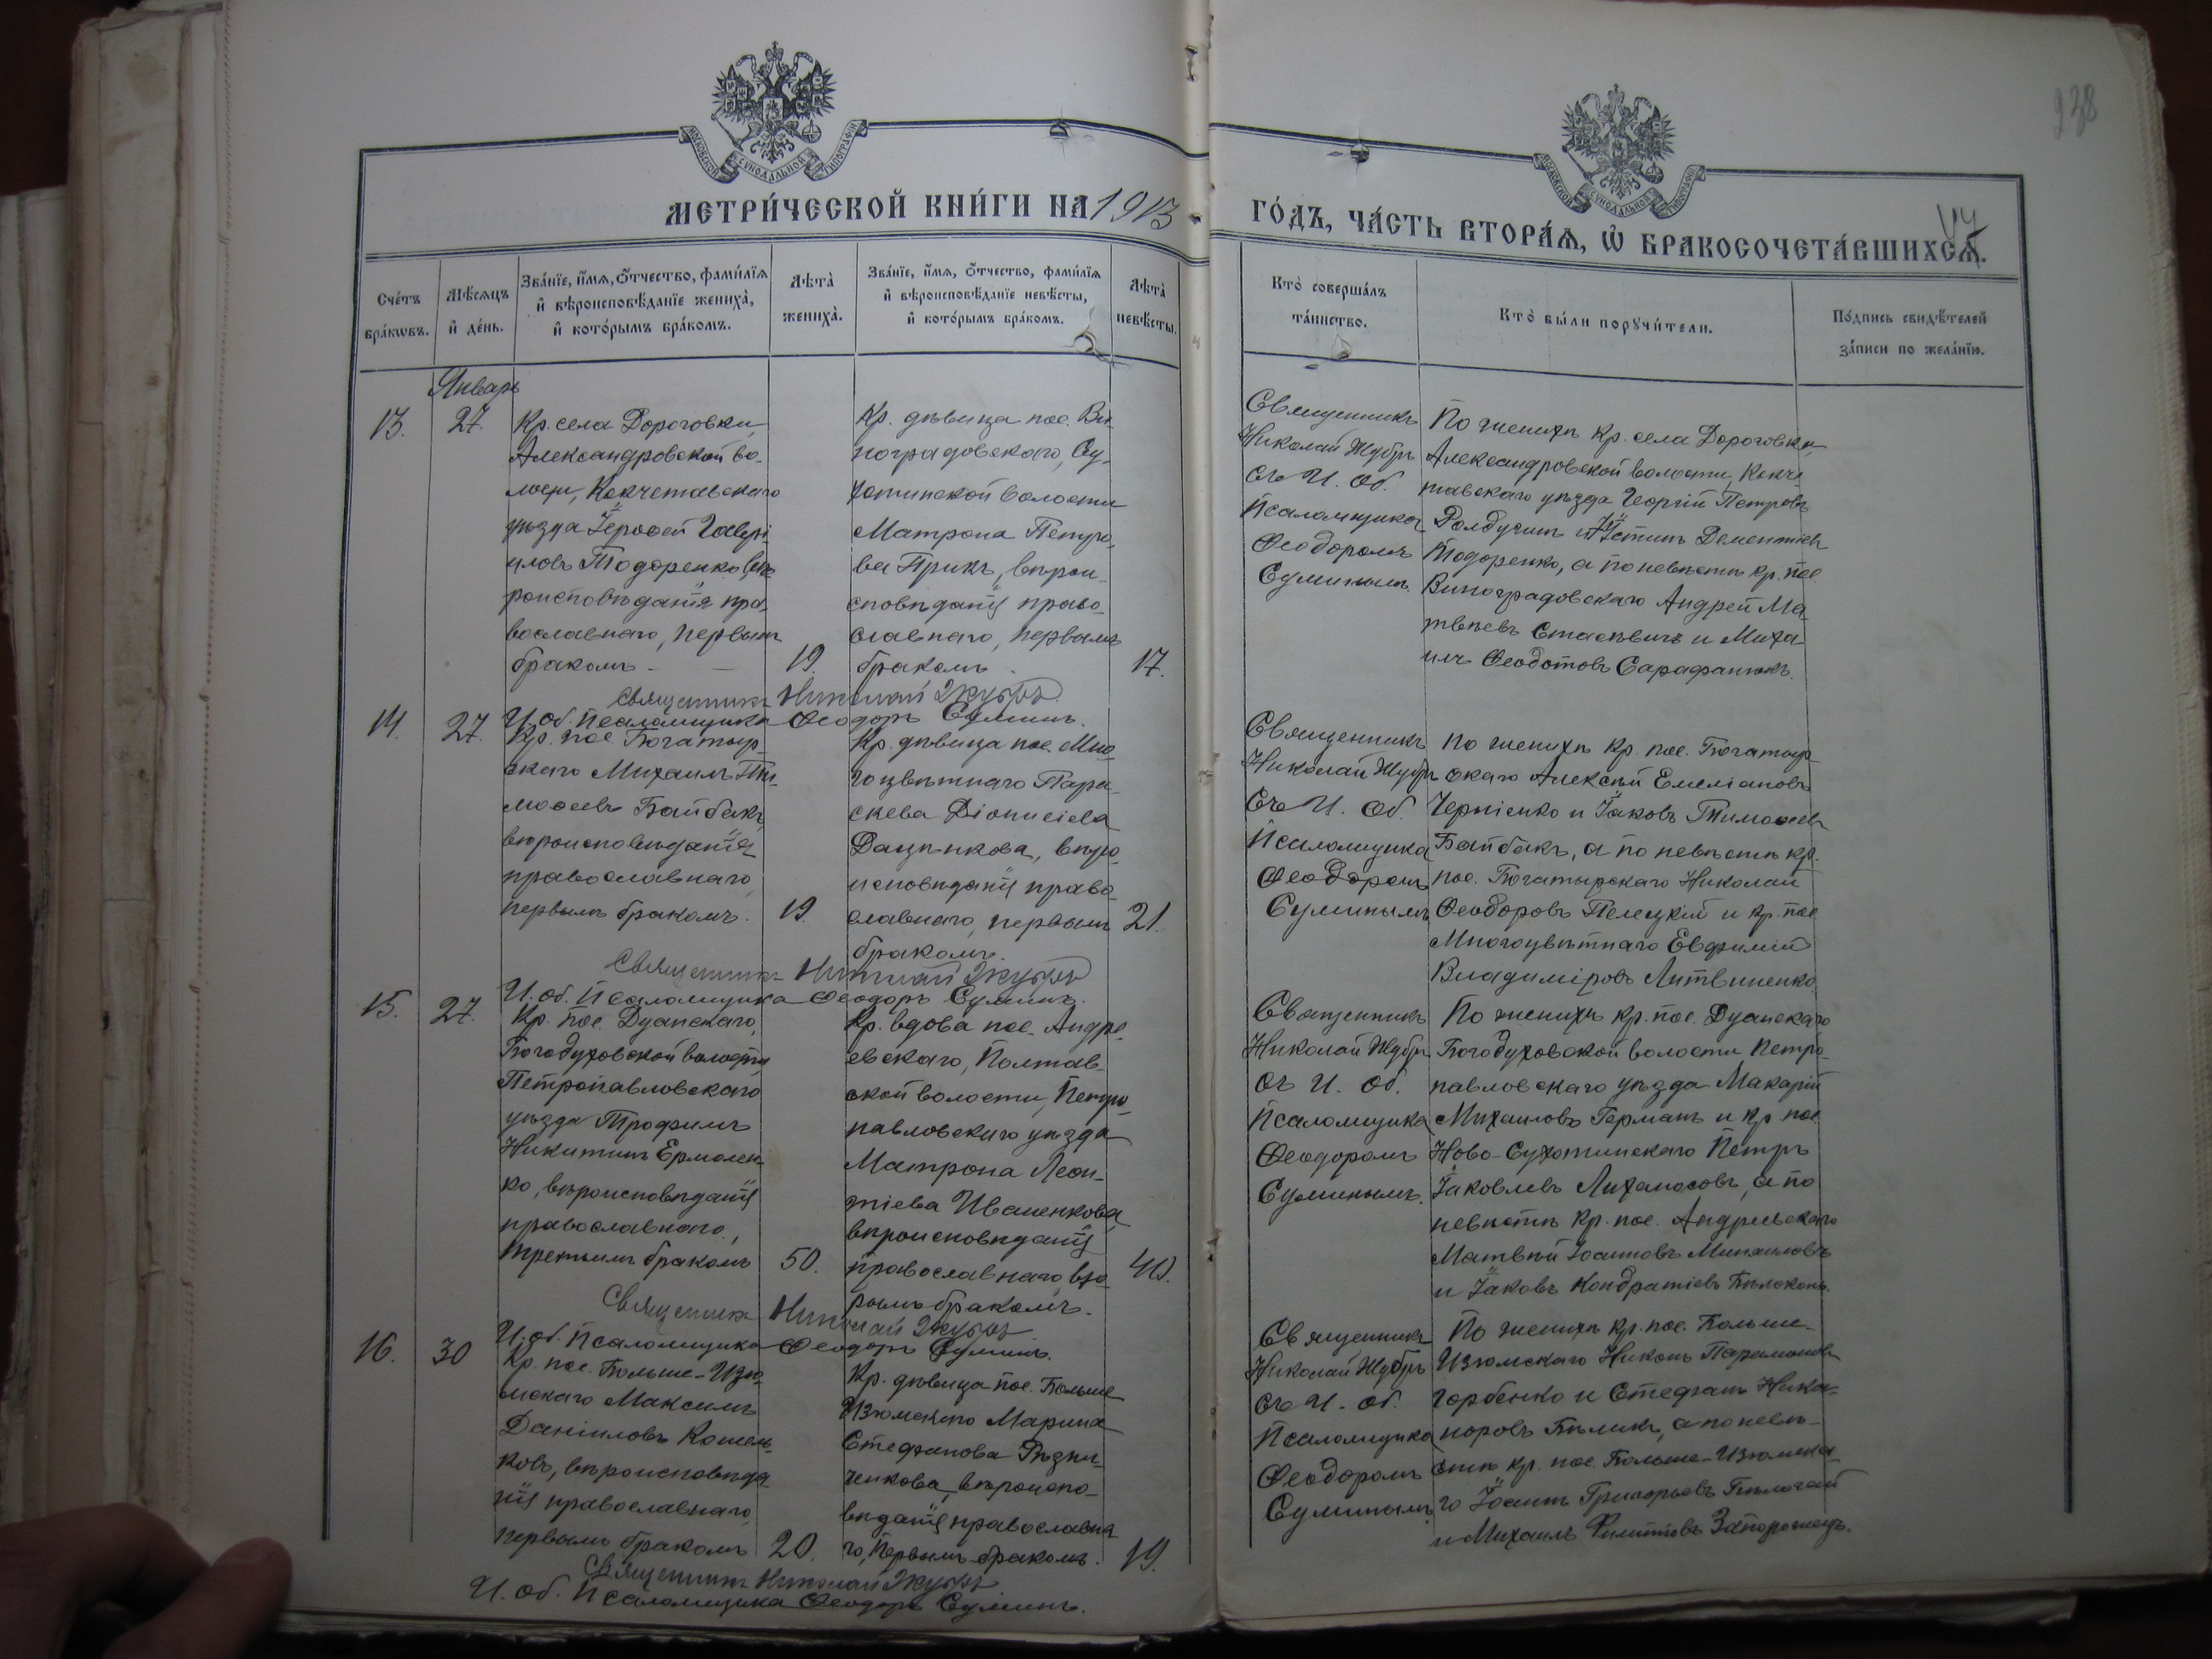 238
МОСКОВСКОЙ СУНОДАЛЬНОЙ ТИПОГРАФІИ
МОСКОВСКОЙ СУНОДАЛЬНОЙ ТИПОГРАФІИ
МЕТРИ́ЧЕСКОЙ КНИ́ГИ НА 1913
ГО́ДЪ, ЧА́СТЬ ВТОРА́Я, Ѿ БРАКОСОЧЕТА́ВШИХСЯ.
Сче́тъ
бра́кѡвъ.
Мѣ́сяцъ
и҆ де́нь.
Зва́нїе, и҆́мя, ѻ҆́тчество, фами́лїя
и҆ вѣроисповѣ́данїе жениха̀,
и҆ кото́рымъ бра́комъ.
Лѣта̀
жениха̀.
Зва́нїе, и҆́мя, ѻ҆́тчество, фами́лїя
и҆ вѣроисповѣ́данїе невѣ́сты,
и҆ кото́рымъ бра́комъ.
Лѣта̀
невѣ́сты.
Кто̀ соверша́лъ
та́инство.
Кто̀ бы́ли порꙋчи́тели.
По́дпись свидѣ́телей
за́писи по жела́нїю.
Январь
13.
27.
Кр. села Дороговки,
Александровской во-
лости, Кокчетавскаго
уѣзда Іероѳей Гаврі-
иловъ Тодоренко, вѣ-
роисповѣданія пра-
вославнаго, первымъ
бракомъ
19.
Кр. дѣвица пос. Ви-
ноградовскаго, Су-
хотинской волости
Матрона Петро-
ва Прикъ, вѣрои-
сповѣданія право-
славнаго, первымъ
бракомъ
17.
Священникъ
Николай Жубръ
съ И. об.
Псаломщика
Ѳеодоромъ
Суминымъ.
По женихѣ кр. села Дороговки,
Александровской волости, Кокче-
тавскаго уѣзда Георгій Петровъ
Дементіевъ
Тодоренко, а по невѣстѣ кр. пос.
Виноградовскаго Андрей Ма-
твѣевъ Стасевичъ и Миха-
илъ Ѳеодотовъ Сарафанюкъ.
Священникъ Николай Жубръ
И. об. Псаломщика Ѳеодоръ Суминъ.
14.
27.
Кр. пос. Богатыр-
скаго Михаилъ Ти-
моѳеевъ Байбакъ,
вѣроисповѣданія
православнаго,
первымъ бракомъ.
19.
Кр. дѣвица пос. Мно-
гоцвѣтнаго Пара-
скева Діонисіева
Даценкова, вѣро-
исповѣданія право-
славнаго, первымъ
бракомъ.
21.
Священникъ
Николай Жубръ
съ И. об.
Псаломщика
Ѳеодоромъ
Суминымъ
По женихѣ кр. пос. Богатыр-
скаго Алексѣй Емеліановъ
Черніенко и Іаковъ Тимоѳеевъ
Байбакъ, а по невѣстѣ кр.
пос. Богатырскаго Николай
Ѳеодоровъ Пелецкій и кр. пос.
Многоцвѣтнаго Евфимій
Владиміровъ Литвиненко.
Священникъ Николай Жубръ
И. об. Псаломщика Ѳеодоръ Суминъ.
15.
27.
Кр. пос. Дуанскаго,
Богодуховской волости,
Петропавловскаго
уѣзда Трофимъ
Никитинъ Ермолен-
ко, вѣроисповѣданія
православнаго,
третьимъ бракомъ
50.
Кр. вдова пос. Андре-
евскаго, Полтав-
ской волости, Петро-
павловскаго уѣзда
Матрона Леон-
тіева Иваненкова,
вѣроисповѣданія
православнаго, вто-
рымъ бракомъ.
40.
Священникъ
Николай Жубръ
съ И. об.
Псаломщика
Ѳеодоромъ
Суминымъ.
По женихѣ кр. пос. Дуанскаго
Богодуховской волости Петро-
павловскаго уѣзда Макарій
Михаиловъ Германъ и кр. пос.
Ново-Сухотинскаго Петръ
Іаковлевъ Лихоносовъ, а по
невѣстѣ кр. пос. Андреевскаго
Матвѣй Іоанновъ Минаиловъ
и Іаковъ Кондратіевъ Бѣлоконь.
Священникъ Николай Жубръ
И. об. Псаломщика Ѳеодоръ Суминъ.
16.
30
Кр. пос. Больше-Изю-
мскаго Максимъ
Даніиловъ Кошель-
ковъ, вѣроисповѣда-
нія православнаго,
первымъ бракомъ
20.
Кр. дѣвица пос. Больше-
Изюмскаго Марина
Стефанова Рѣзни-
ченкова, вѣроиспо-
вѣданія православна-
го, первымъ бракомъ.
19.
Священникъ
Николай Жубръ
съ И. об.
Псаломщика
Ѳеодоромъ
Суминымъ
По женихѣ кр. пос. Больше-
Изюмскаго Никонъ Парамоновъ
Горбенко и Стефанъ Ника-
норовъ Бѣликъ, а по невѣ-
стѣ кр. пос. Больше-Изюмска-
го Іоаннъ Григорьевъ
и Михаилъ Филипповъ Запорожецъ.
Священникъ Николай Жубръ
И. об. Псаломщика Ѳеодоръ Суминъ.